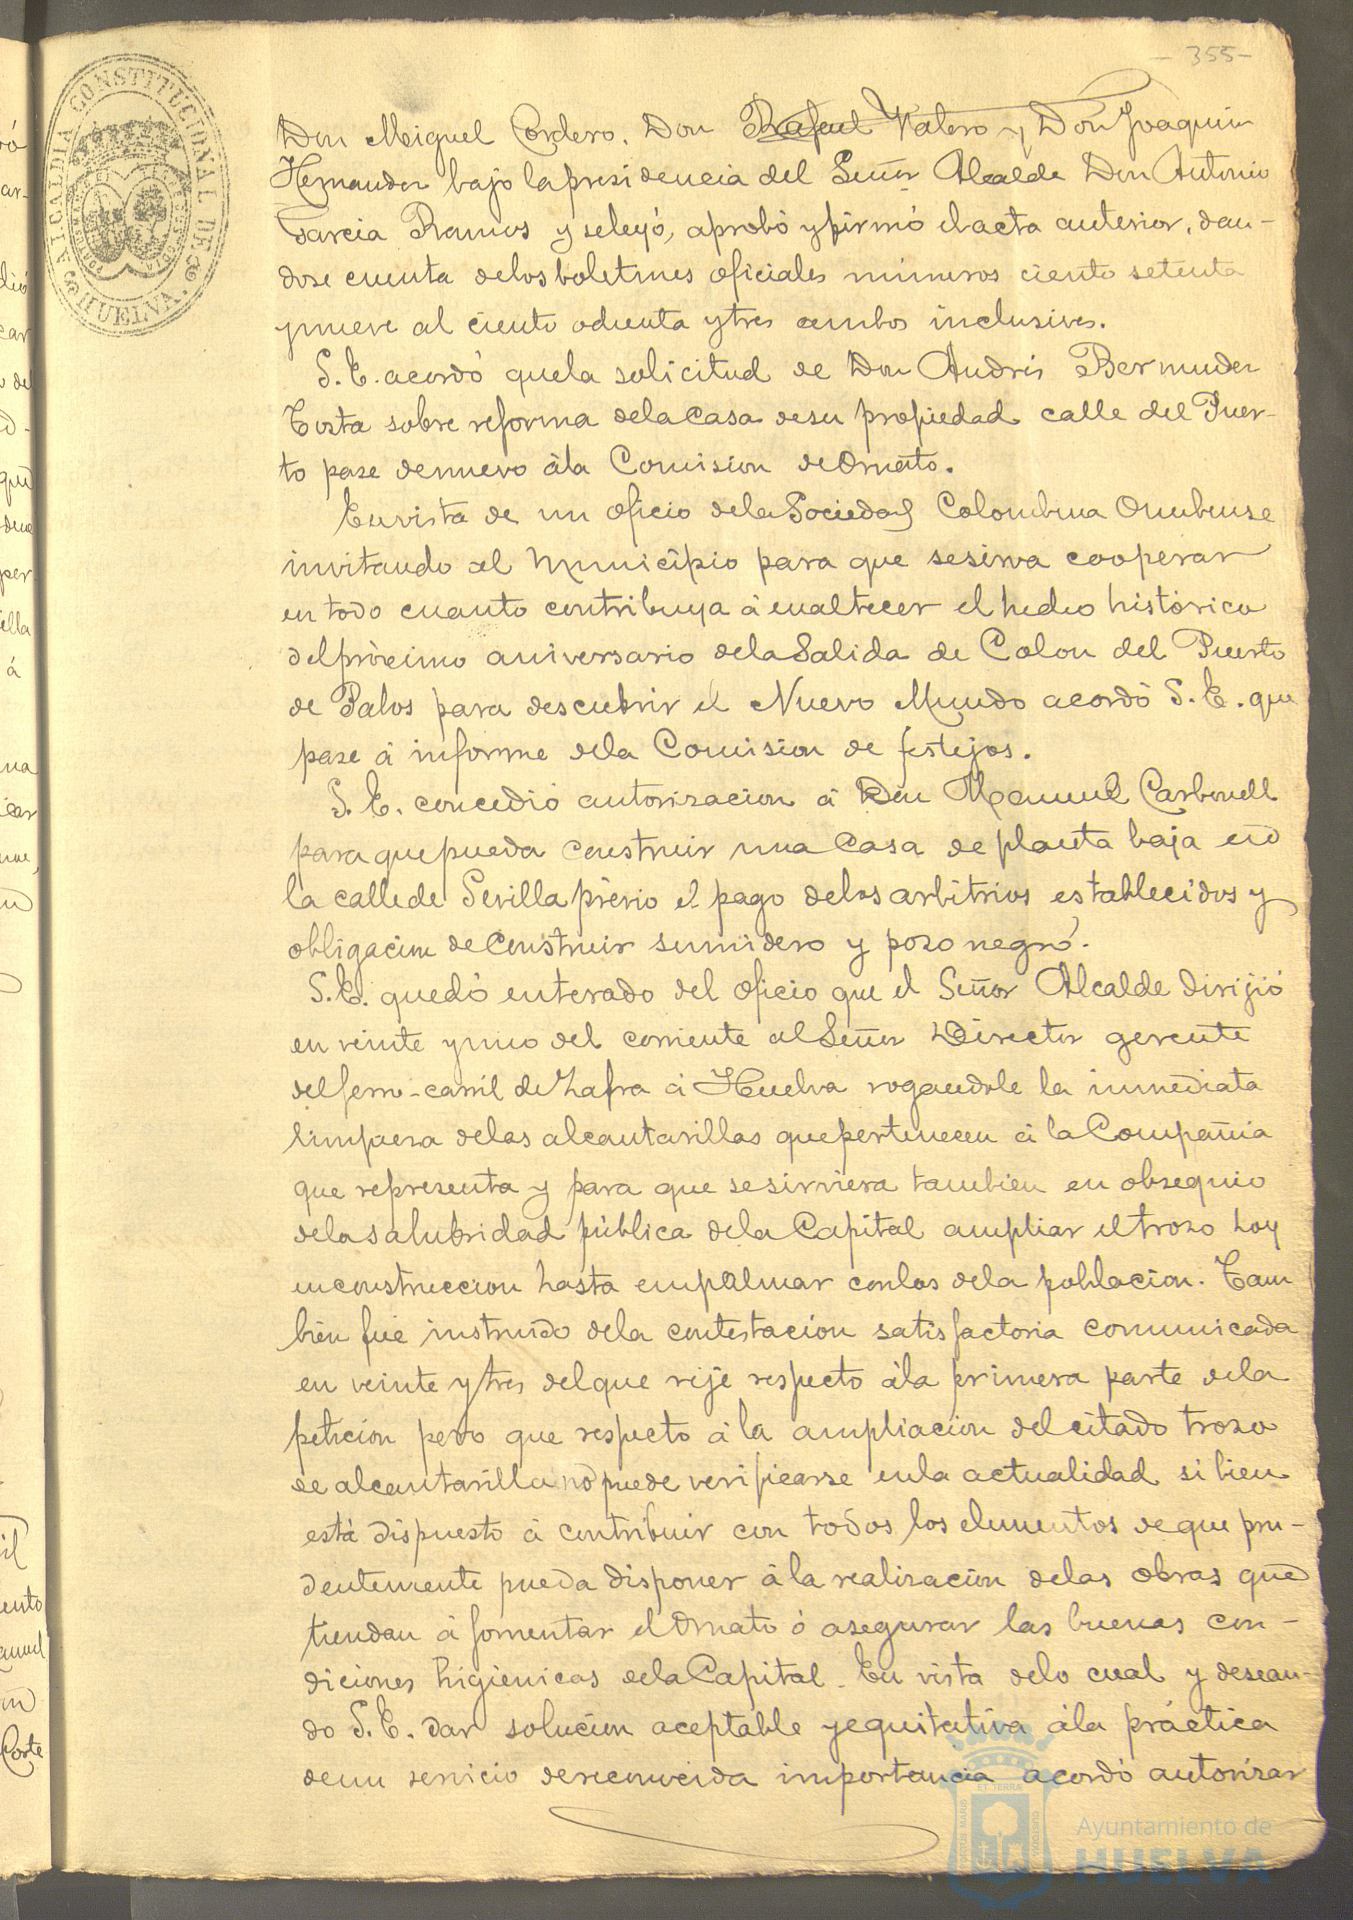 - 355 -
ALCALDIA CONSTITUCIONAL DE HUELVA.
Don Miguel Cordero, Don Rafael Valero y Don Joaquin
Hernandez bajo la presidencia del Señor Alcalde Don Antonio
Garcia Ramos y se leyó, aprobó y firmó el acta anterior, dan-
dose cuenta de los boletines oficiales números ciento setenta
y nueve al ciento ochenta y tres ambos inclusives.
S. E. acordó que la solicitud de Don Andrés Bermudez
Tosta sobre reforma de la Casa de su propiedad calle del Puer-
to pase de nuevo á la Comision de Ornato.
En vista de un oficio de la Sociedad Colombina Onubense
invitando al Municipio para que se sirva cooperar
en todo cuanto contribuya á enaltecer el hecho histórico
del próximo aniversario de la Salida de Colon del Puerto
de Palos para descubrir el Nuevo Mundo acordó S. E. que
pase á informe de la Comision de festejos.
S. E. concedió autorizacion á Don Manuel Carbonell
para que pueda construir una Casa de planta baja en
la calle de Sevilla prévio el pago de los arbitrios establecidos y
obligacion de Construir sumidero y pozo negro.
S. E. quedó enterado del oficio que el Señor Alcalde dirijió
en veinte y uno del corriente al Señor Director gerente
del ferro-carril de Zafra á Huelva rogandole la inmediata
limpieza de las alcantarillas que pertenecen á la Compañia
que representa y para que se sirviera tambien en obsequio
de la salubridad pública de la Capital ampliar el trozo hoy
en construccion hasta empalmar con las de la poblacion. Tam
bien fué instruido de la contestacion satisfactoria comunicada
en veinte y tres del que rije respecto á la primera parte de la
peticion pero que respecto á la ampliacion del citado trozo
de alcantarilla no puede verificarse en la actualidad si bien
está dispuesto á contribuir con todos los elementos de que pru-
dentemente pueda disponer á la realizacion de las obras que
tiendan á fomentar el Ornato ó asegurar las buenas con-
diciones higiénicas de la Capital. En vista de lo cual y desean-
do S. E. dar solucion aceptable y equitativa á la práctica
de un servicio de reconocida importancia acordó autorizar
Ayuntamiento de
HUELVA